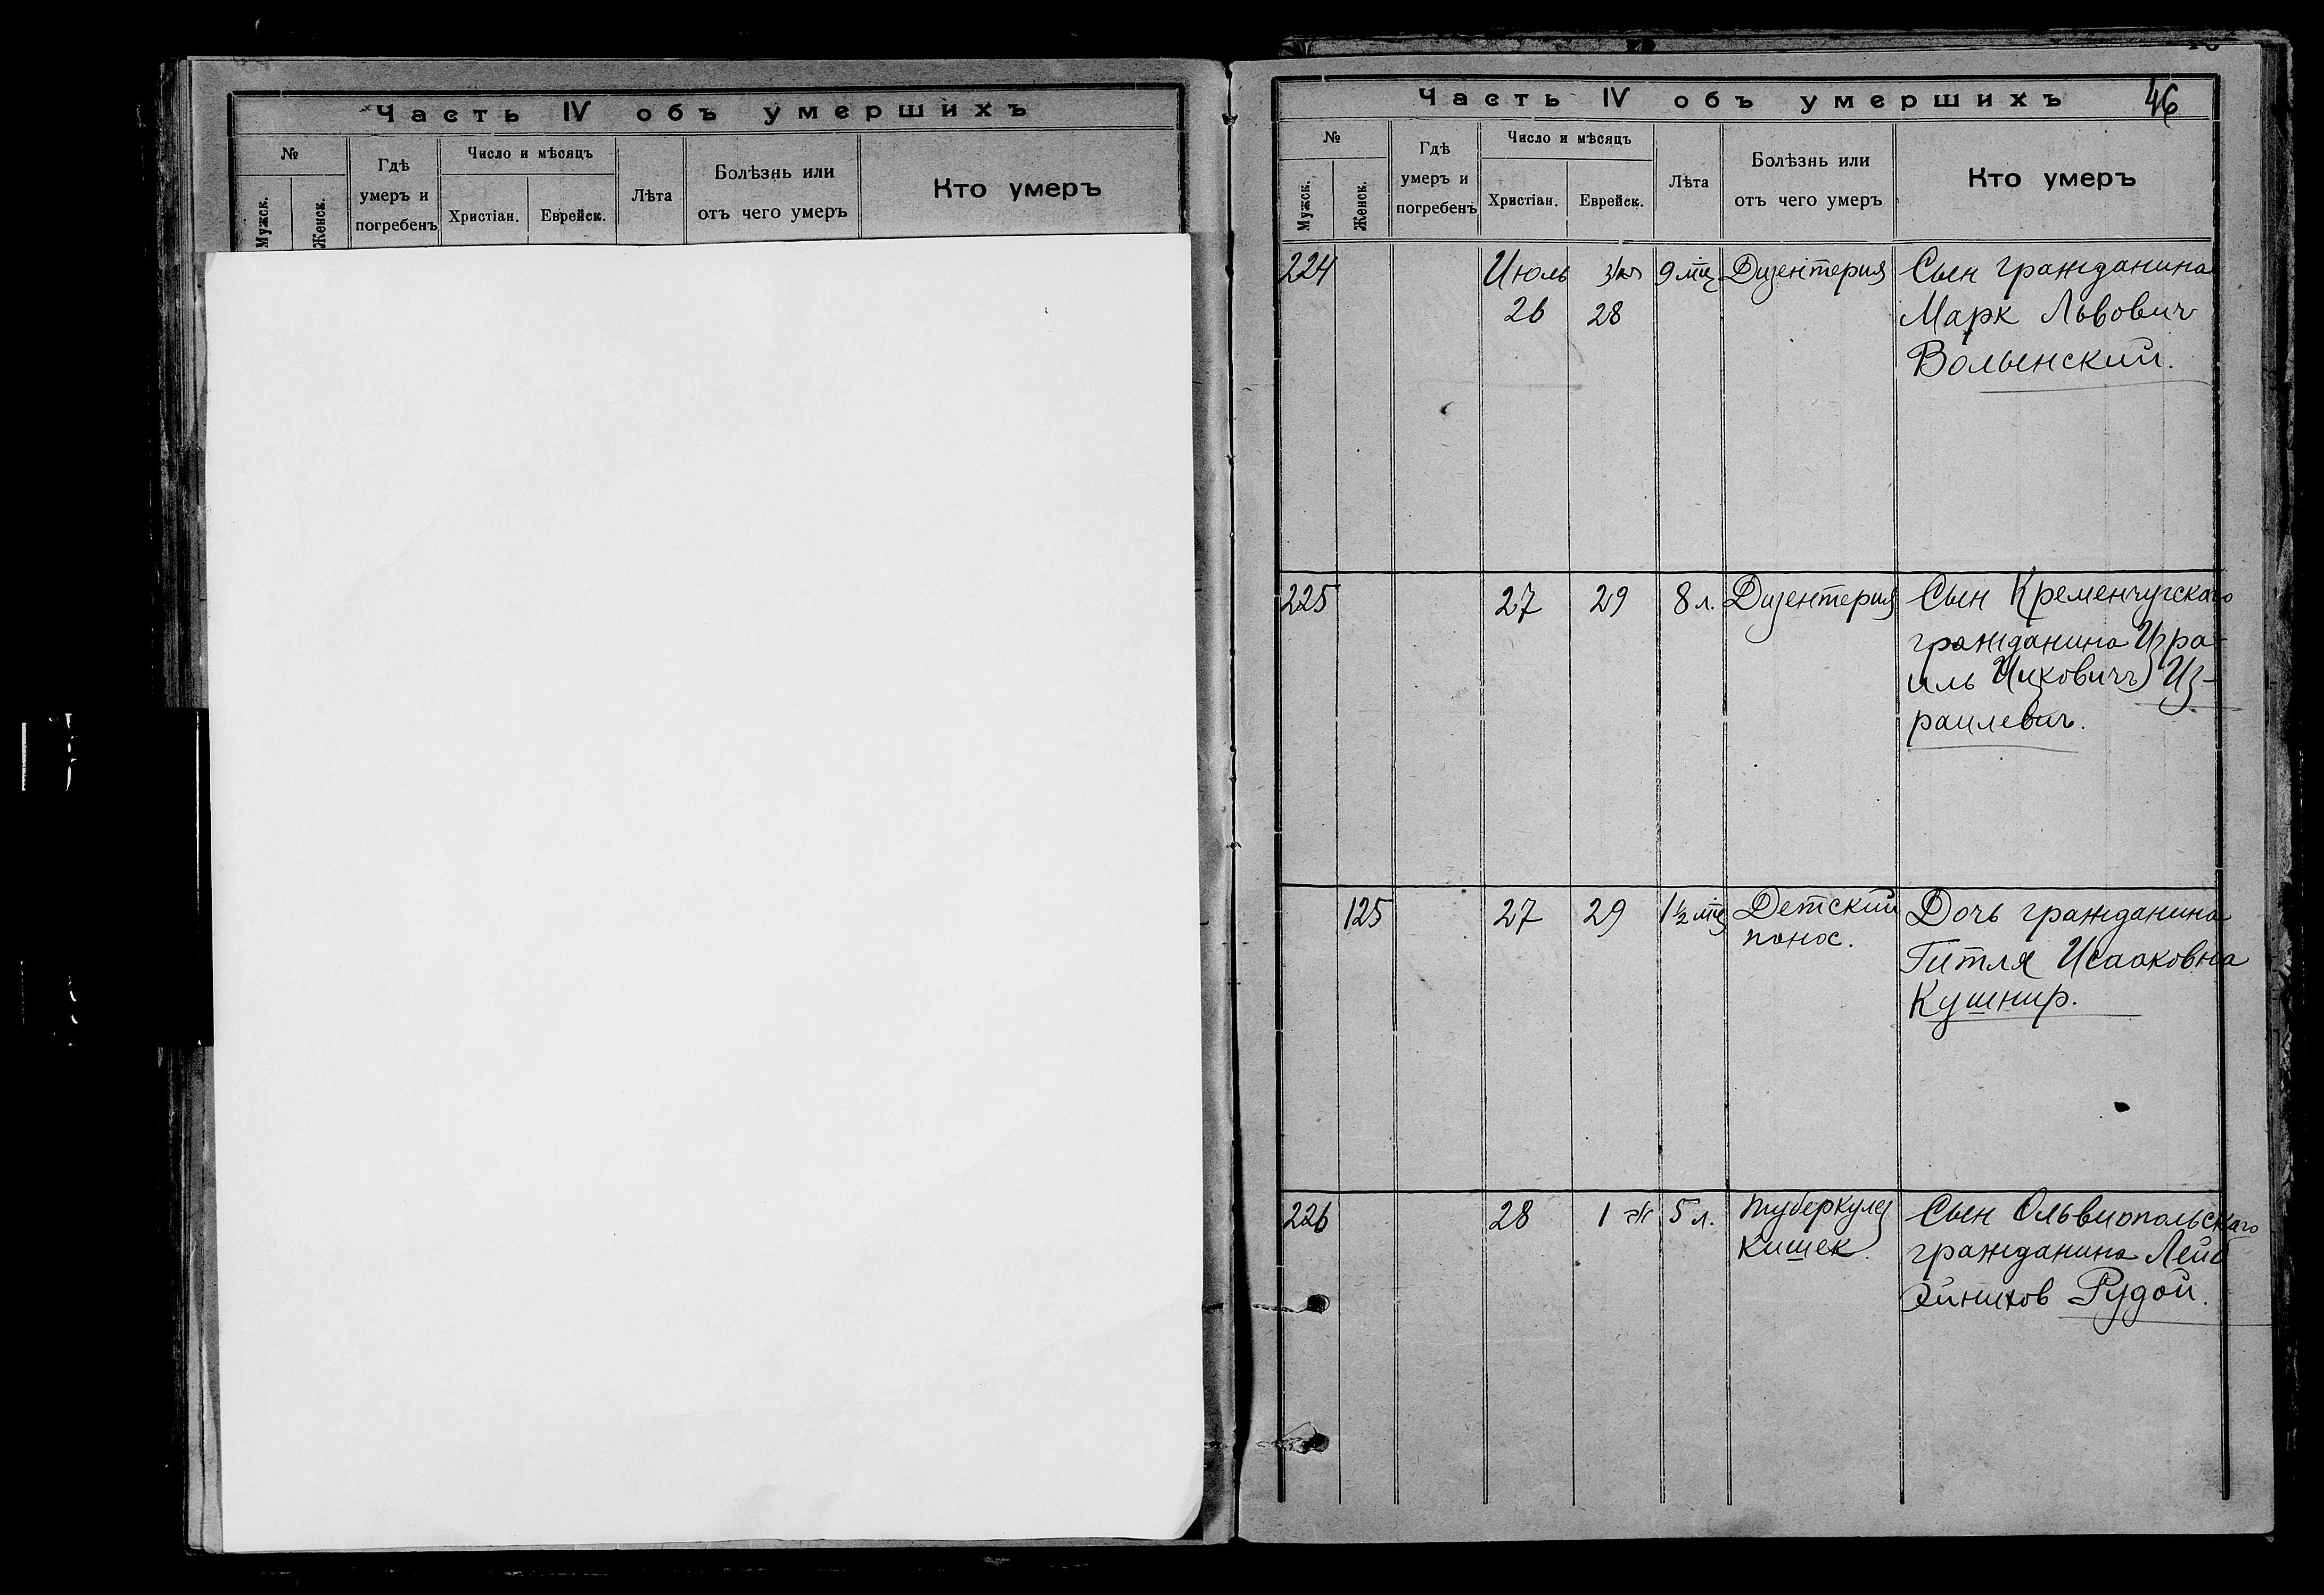 Часть IV объ умершихъ
№
Мужск.
Женск.
Гдѣ
умеръ и
погребенъ
Число и мѣсяцъ
Христіан.
Еврейск.
Лѣта
Болѣзнь или
отъ чего умеръ
Кто умеръ
Часть IV объ умершихъ
46
№
Мужск.
Женск.
Гдѣ
умеръ и
погребенъ
Число и мѣсяцъ
Христіан.
Еврейск.
Лѣта
Болѣзнь или
отъ чего умеръ
Кто умеръ
224
Июль
26
28
9 мц
Дизентерия
Сын гражданина
Марк Львович
Волынский.
225
27
29
8 л.
Дизентерия
Сын Кременчугскаго
гражданина Изра-
иль Ицковичъ Из-
раилевич.
125
27
29
1 ½ мц
Детский
понос.
Дочь гражданина
Гитля Исааковна
Кушнир.
226
28
1
5 л.
туберкулез
кишек
Сын Ольвиопольскаго
гражданина Лейб
Рудой.